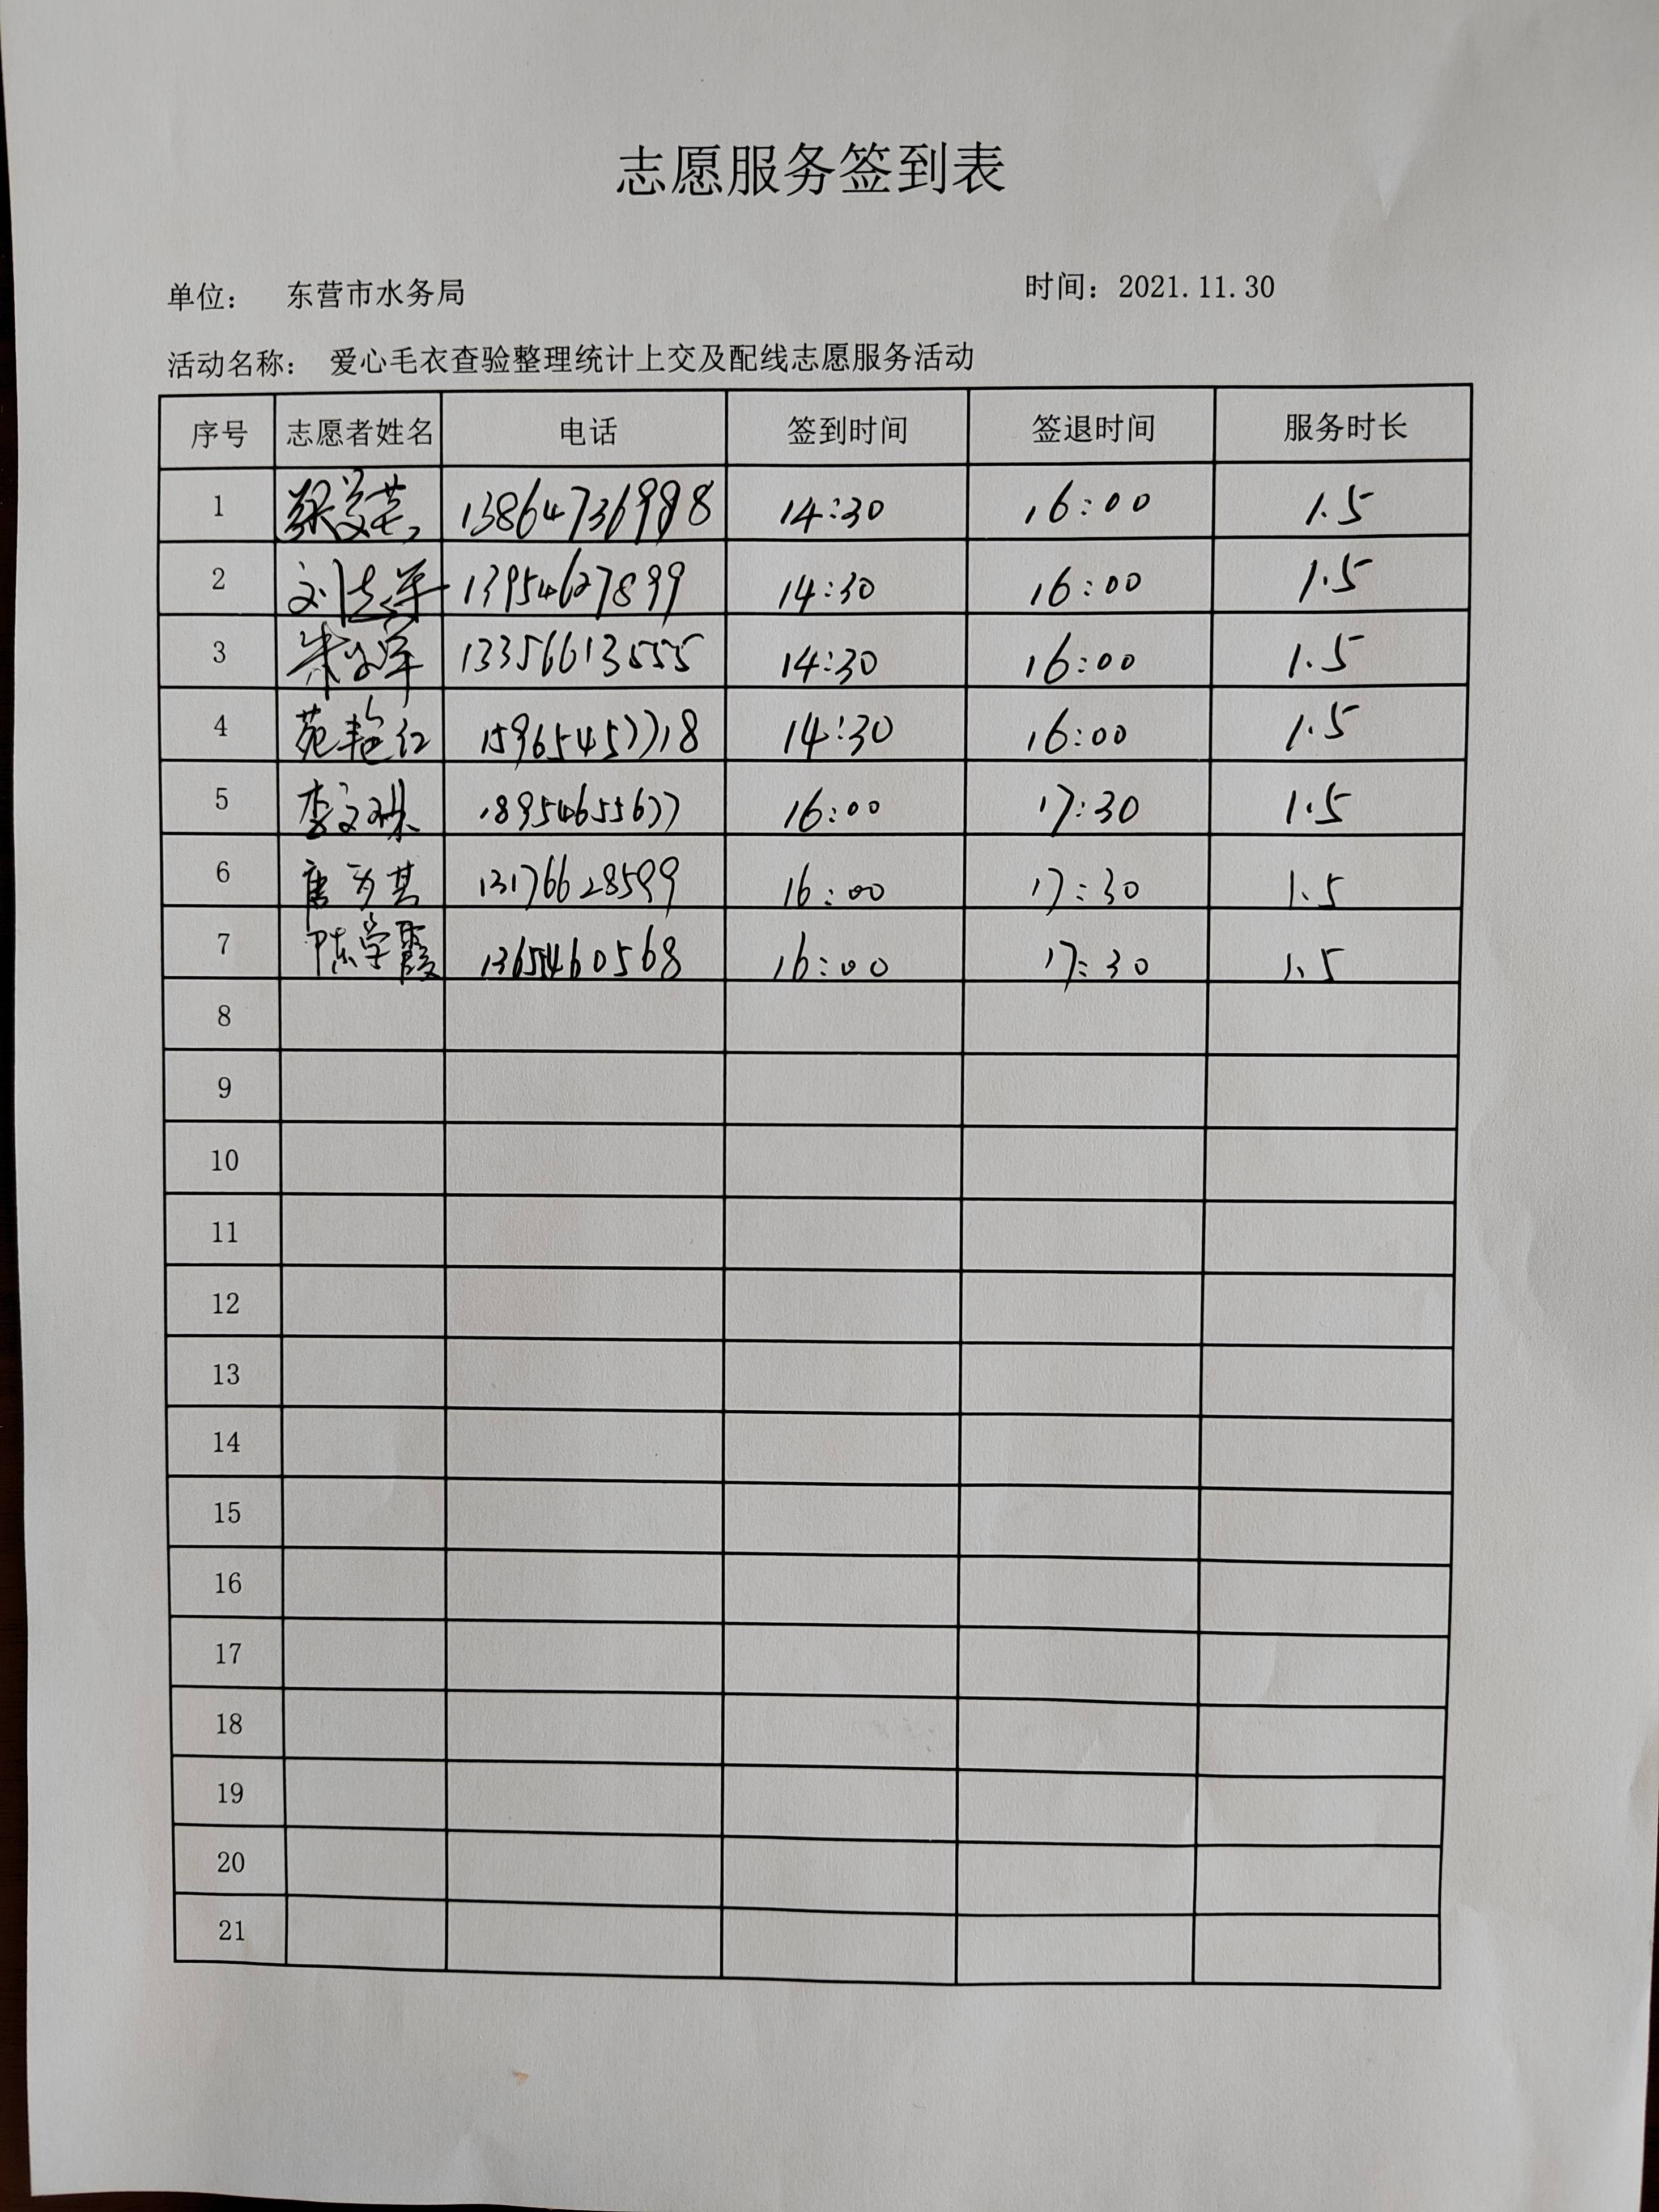 志愿服务签到表
单位： 东营市水务局 时间：2021.11.30
活动名称： 爱心毛衣查验整理统计上交及配线志愿服务活动
序号 志愿者姓名 电话 签到时间 签退时间 服务时长
1 13864736998 14:30 16:00 1.5
2 刘志军 13954627899 14:30 16:00 1.5
3 13356613555 14:30 16:00 1.5
4 苑艳红 15965457718 14:30 16:00 1.5
5 李文琳 18954655677 16:00 17:30 1.5
6 唐为其 13176628599 16:00 17:30 1.5
7 陈学霞 13655460568 16:00 17:30 1.5
8
9
10
11
12
13
14
15
16
17
18
19
20
21